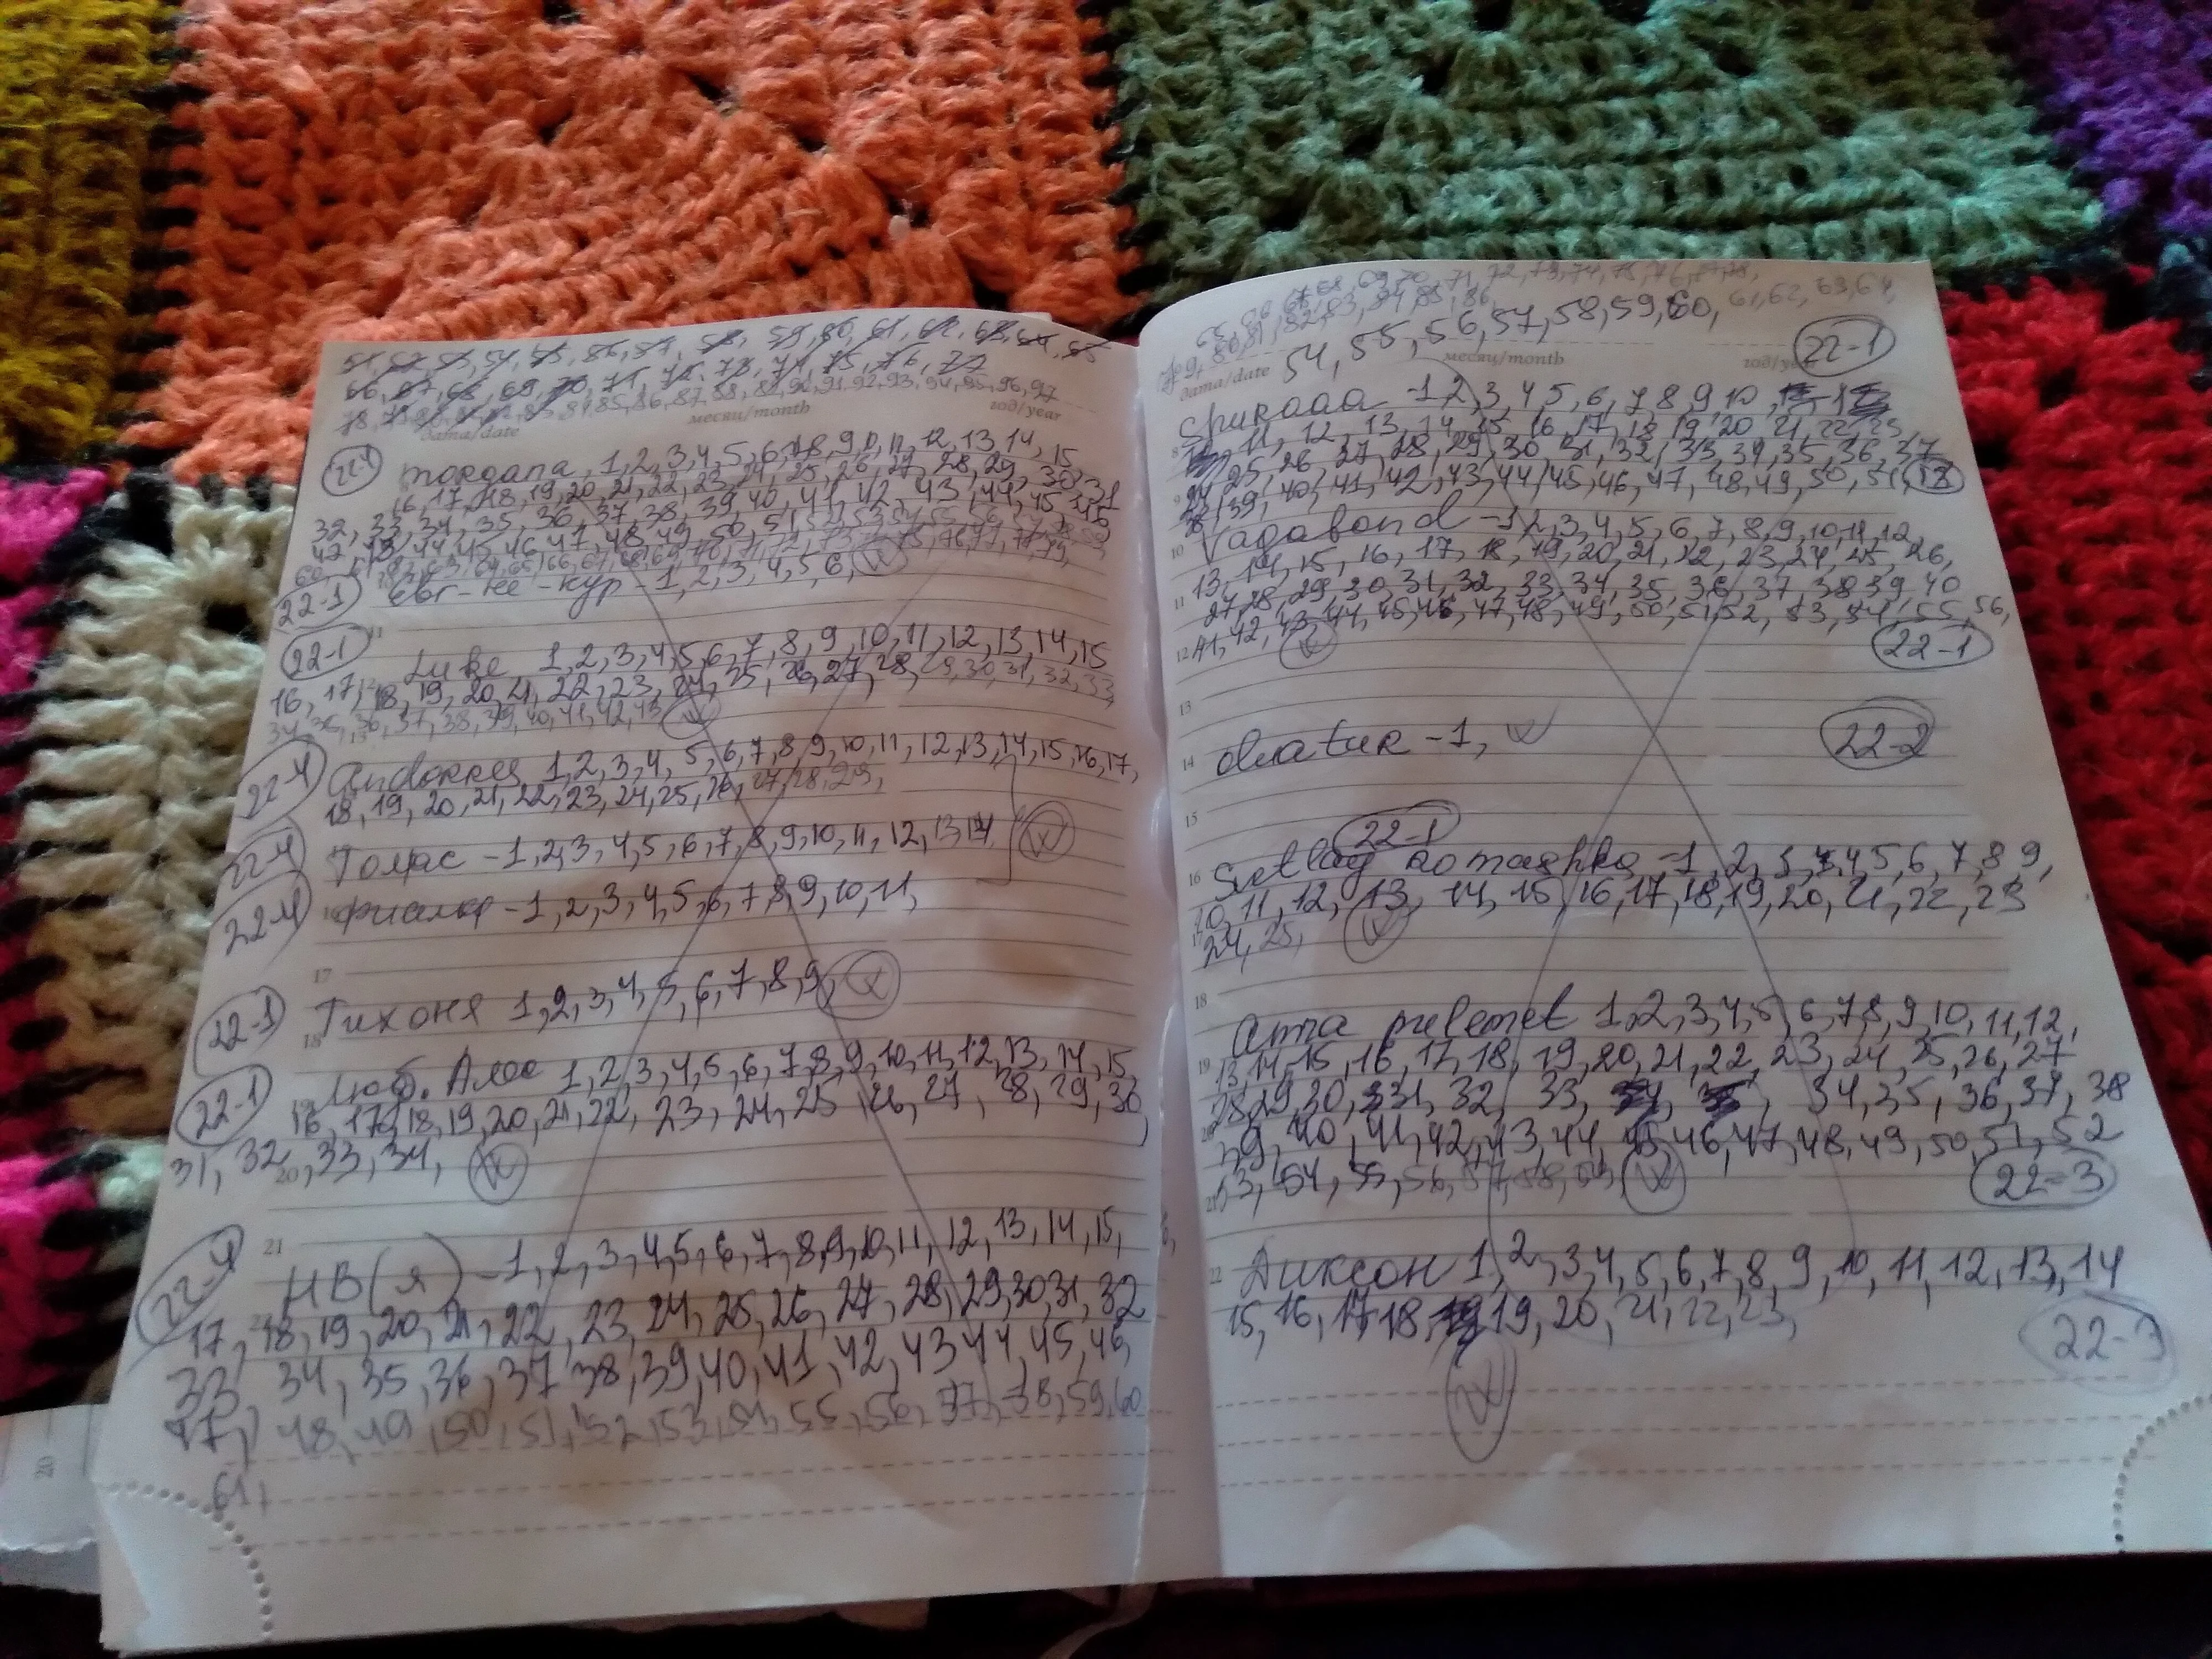 51, 52, 53, 54, 55, 56, 57, 58, 59, 60, 61, 62, 63, 64, 65
66, 67, 68, 69, 70, 71, 72, 73, 74, 75, 76, 77
78, 79, 80, 81, 82, 83, 84, 85, 86, 87, 88, 89, 90, 91, 92, 93, 94, 95, 96, 97
дата/date месяц/month год/year
morgana, 1, 2, 3, 4, 5, 6, 7, 8, 9, 10, 11, 12, 13, 14, 15
16, 17, 18, 19, 20, 21, 22, 23, 24, 25, 26, 27, 28, 29, 30, 31
32, 33, 34, 35, 36, 37, 38, 39, 40, 41, 42, 43, 44, 45, 46
42, 43, 44, 45, 46, 47, 48, 49, 50, 51, 52, 53, 54, 55, 56, 57, 58, 59
22-1 евг-не-кур-1, 2, 3, 4, 5, 6,
22-1 Luke 1, 2, 3, 4, 5, 6, 7, 8, 9, 10, 11, 12, 13, 14, 15
16, 17, 18, 19, 20, 21, 22, 23, 24, 25, 26, 27, 28, 29, 30, 31, 32, 33
34, 35, 36, 37, 38, 39, 40, 41, 42, 43
22-4 1, 2, 3, 4, 5, 6, 7, 8, 9, 10, 11, 12, 13, 14, 15, 16, 17,
18, 19, 20, 21, 22, 23, 24, 25, 26, 27, 28, 29,
22-4 Томас -1, 2, 3, 4, 5, 6, 7, 8, 9, 10, 11, 12, 13, 14
22-4 -1, 2, 3, 4, 5, 6, 7, 8, 9, 10, 11,
17
22-1 Тихоня 1, 2, 3, 4, 5, 6, 7, 8, 9,
18
22-1 19 Люб. Алес 1, 2, 3, 4, 5, 6, 7, 8, 9, 10, 11, 12, 13, 14, 15
16, 17, 18, 19, 20, 21, 22, 23, 24, 25, 26, 27, 28, 29, 30
31, 32, 33, 34,
20
21
22-4 НВ(я) -1, 2, 3, 4, 5, 6, 7, 8, 9, 10, 11, 12, 13, 14, 15,
17, 18, 19, 20, 21, 22, 23, 24, 25, 26, 27, 28, 29, 30, 31, 32
33, 34, 35, 36, 37, 38, 39, 40, 41, 42, 43, 44, 45, 46,
47, 48, 49, 50, 51, 52, 53, 54, 55, 56, 57, 58, 59, 60
61,
20
65, 66, 67, 68, 69, 70, 71, 72, 73, 74, 75, 76, 77, 78,
79, 80, 81, 82, 83, 84, 85, 86
54, 55, 56, 57, 58, 59, 60, 61, 62, 63, 64,
дата/date месяц/month год/year 22-1
-1, 2, 3, 4, 5, 6, 7, 8, 9, 10
11, 12, 13, 14, 15, 16, 17, 18, 19, 20, 21, 22, 23,
24, 25, 26, 27, 28, 29, 30, 31, 32, 33, 34, 35, 36, 37
38, 39, 40, 41, 42, 43, 44, 45, 46, 47, 48, 49, 50, 51,
10 Vagabond -1, 2, 3, 4, 5, 6, 7, 8, 9, 10, 11, 12,
13, 14, 15, 16, 17, 18, 19, 20, 21, 22, 23, 24, 25, 26,
11 27, 28, 29, 30, 31, 32, 33, 34, 35, 36, 37, 38, 39, 40
12 41, 42, 43, 44, 45, 46, 47, 48, 49, 50, 51, 52, 53, 54, 55, 56,
22-1
13
14 -1, 22-2
15
22-1
16 -1, 2, 3, 4, 5, 6, 7, 8, 9,
10, 11, 12, 13, 14, 15, 16, 17, 18, 19, 20, 21, 22, 23
17 24, 25,
18
1, 2, 3, 4, 5, 6, 7, 8, 9, 10, 11, 12,
19 13, 14, 15, 16, 17, 18, 19, 20, 21, 22, 23, 24, 25, 26, 27
28, 29, 30, 31, 32, 33, 34, 35, 36, 37, 38
39, 40, 41, 42, 43, 44, 45, 46, 47, 48, 49, 50, 51, 52
21 53, 54, 55, 56, 57, 58, 59, 22-3
22 Диксон 1, 2, 3, 4, 5, 6, 7, 8, 9, 10, 11, 12, 13, 14
15, 16, 17, 18, 19, 20, 21, 22, 23,
22-3